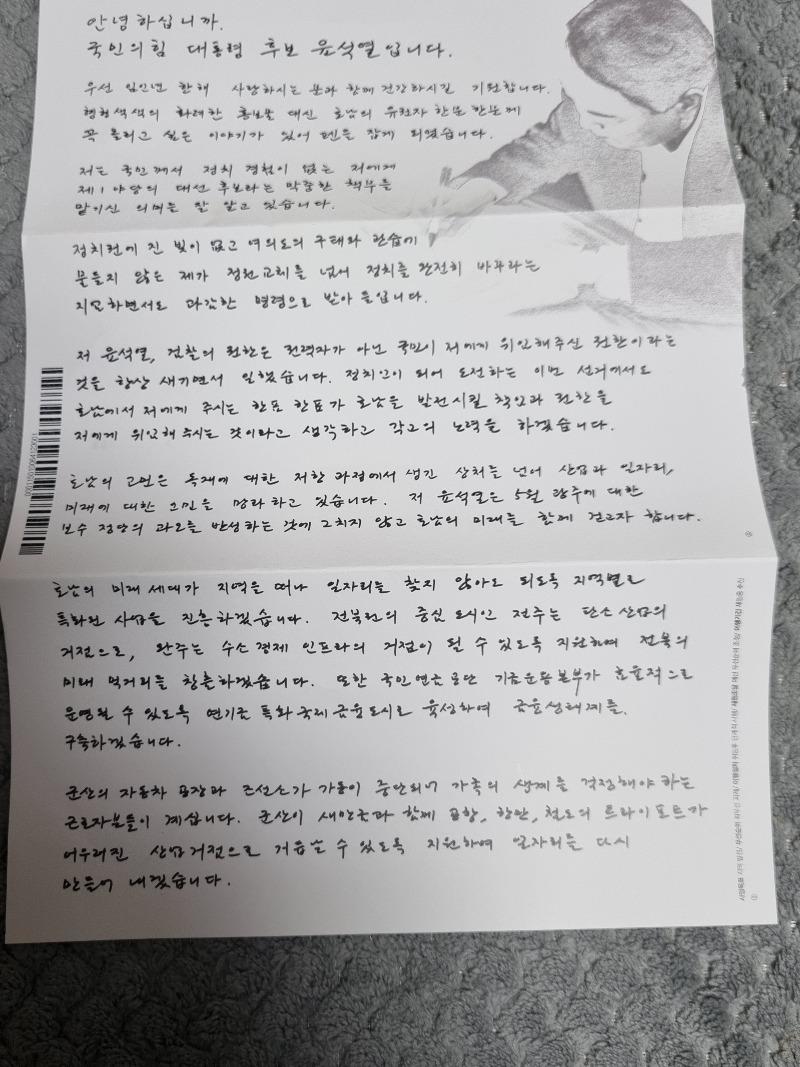 안녕하십니까.
국민의힘 대통령 후보 윤석열입니다.
우선 임인년 한해 사랑하시는 분과 함께 건강하시길 기원합니다.
형형색색의 화려한 홍보물 대신 호남의 유권자 한분 한분께
꼭 올리고 싶은 이야기가 있어 펜을 잡게 되었습니다.
저는 국민께서 정치 경험이 없는 저에게
제1야당의 대선후보라는 막중한 책무를
맡기신 의미를 잘 알고 있습니다.
정치권에 진 빚이 없고 여의도의 구태와 관습에
물들지 않은 제가 정권교체를 넘어 정치를 완전히 바꾸라는
지엄하면서도 과감한 명령으로 받아들입니다.
저 윤석열, 검찰의 권한은 권력자가 아닌 국민이 저에게 위임해주신 권한이라는
것을 항상 새기면서 일했습니다. 정치인이 되어 도전하는 이번 선거에서도
호남에서 저에게 주시는 한표 한표가 호남을 발전시킬 책임과 권한을
저에게 위임해 주시는 것이라고 생각하고 각고의 노력을 하겠습니다.
호남의 고민은 독재에 대한 저항 과정에서 생긴 상처를 넘어 산업과 일자리,
미래에 대한 고민을 망라하고 있습니다. 저 윤석열은 5월 광주에 대한
보수 정당의 과오를 반성하는 것에 그치지 않고 호남의 미래를 함께 걷고자 합니다.
호남의 미래 세대가 지역을 떠나 일자리를 찾지 않아도 되도록 지역별로
특화된 사업을 진흥하겠습니다. 전북권의 중심 도시인 전주는 탄소산업의
거점으로, 완주는 수소경제 인프라의 거점이 될 수 있도록 지원하여 전북의
미래 먹거리를 창출하겠습니다. 또한 국민연금공단 기금운용본부가 효율적으로
운영될 수 있도록 연기금 특화 국제금융도시로 육성하여 금융생태계를
구축하겠습니다.
군산의 자동차 공장과 조선소가 가동이 중단되어 가족의 생계를 걱정해야 하는
근로자분들이 계십니다. 군산이 새만금과 함께 공항, 항만, 철도의 트라이포트가
어우러진 산업거점으로 거듭날 수 있도록 지원하여 일자리를 다시
만들어 내겠습니다.